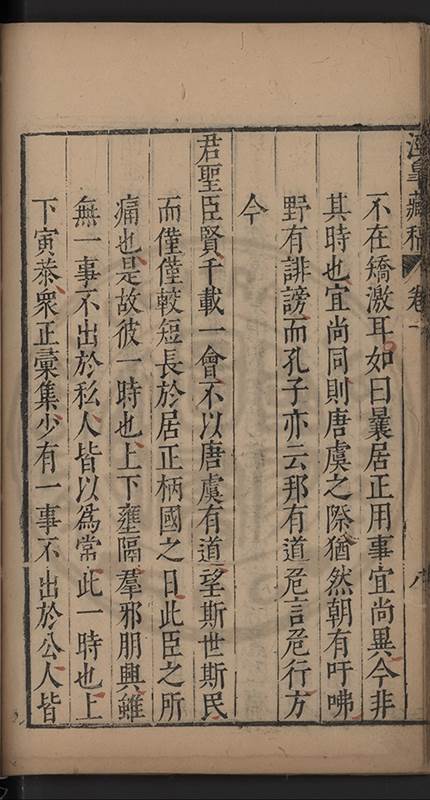 涇皐藏稿 卷一 八
不在矯激耳如曰曩居正用事宜尚異今非
其時也宜尚同則唐虞之際猶然朝有吁咈
野有誹謗而孔子亦云邦有道危言危行方
今
君聖臣賢千載一會不以唐虞有道望斯世斯民
而僅僅較短長於居正柄國之日此臣之所
痛也是故彼一時也上下壅隔羣邪朋興雖
無一事不出於私人皆以爲常此一時也上
下寅恭衆正彙集少有一事不出於公人皆